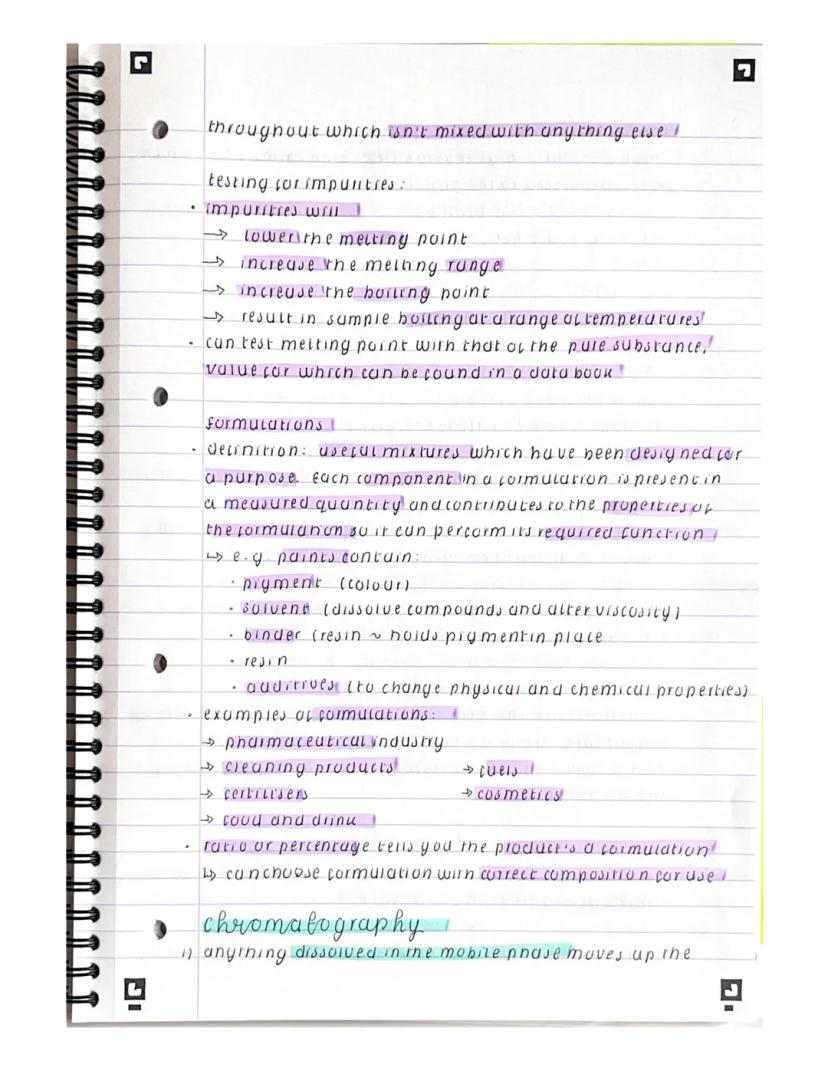 throughout which isn't mixed with anything else
testing for impurities:
• impurities will
→ lower the melting point
→ increase the melting range
→ increase the boiling point
→ result in sample boiling at a range of temperatures
• can test melting point with that of the pure substance,
value for which can be found in a data book
formulations
• definition: useful mixtures which have been designed for
a purpose. Each component in a formulation is present in
a measured quantity and contributes to the properties of
the formulation so it can perform its required function
↳ e.g. paints contain:
• pigment (colour)
• solvent (dissolve compounds and alter viscosity)
• binder (resin ~ holds pigment in place
• resin
• additives (to change physical and chemical properties)
• examples of formulations:
→ pharmaceutical industry
→ cleaning products → fuels
→ fertilisers → cosmetics
→ food and drink
• ratio or percentage tells you the product's a formulation
↳ can choose formulation with correct composition for use
chromatography
1) anything dissolved in the mobile phase moves up the